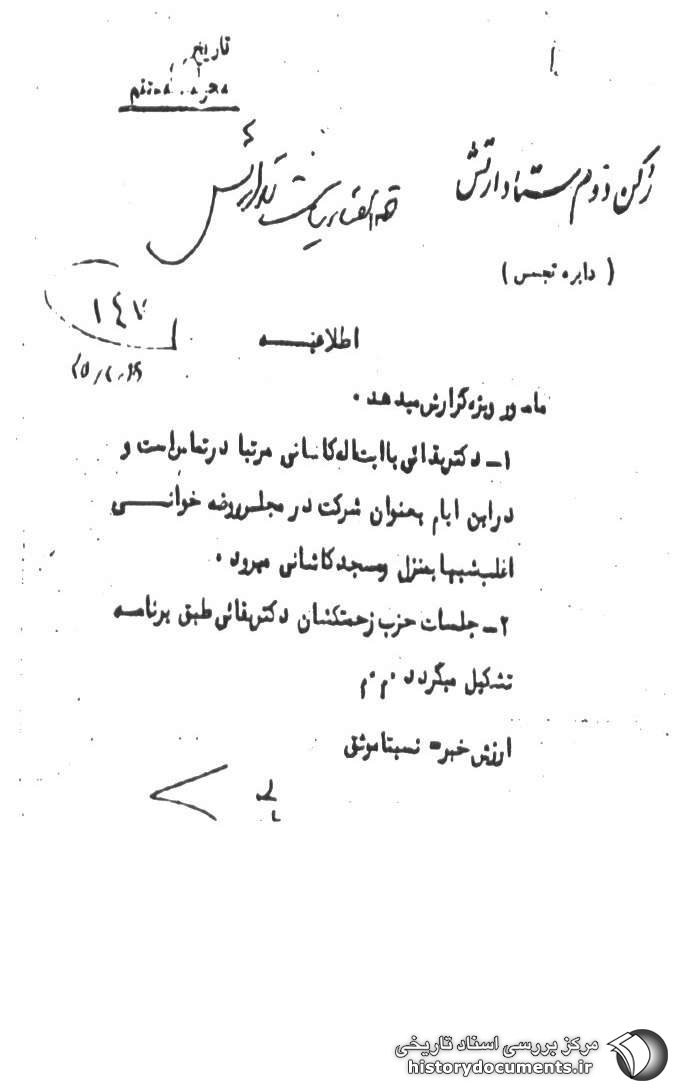 تاریخ
محرمانه مستقیم
رکن دوم ستاد ارتش
(دایره تجسس)
۱٤۷
اطلاعیه
مامور ویژه گزارش میدهد .
۱ـ دکتر بقائی با ایت اله کاشانی مرتبا در تماس است و
در این ایام بعنوان شرکت در مجلس روضه خوانی
اغلب شبها بمنزل و مسجد کاشانی میرود .
۲ـ جلسات حزب زحمتکشان دکتر بقائی طبق برنامه
تشکیل میگردد .م.م
ارزش خبر= نسبتا موثق
مرکز بررسی اسناد تاریخی
historydocuments.ir